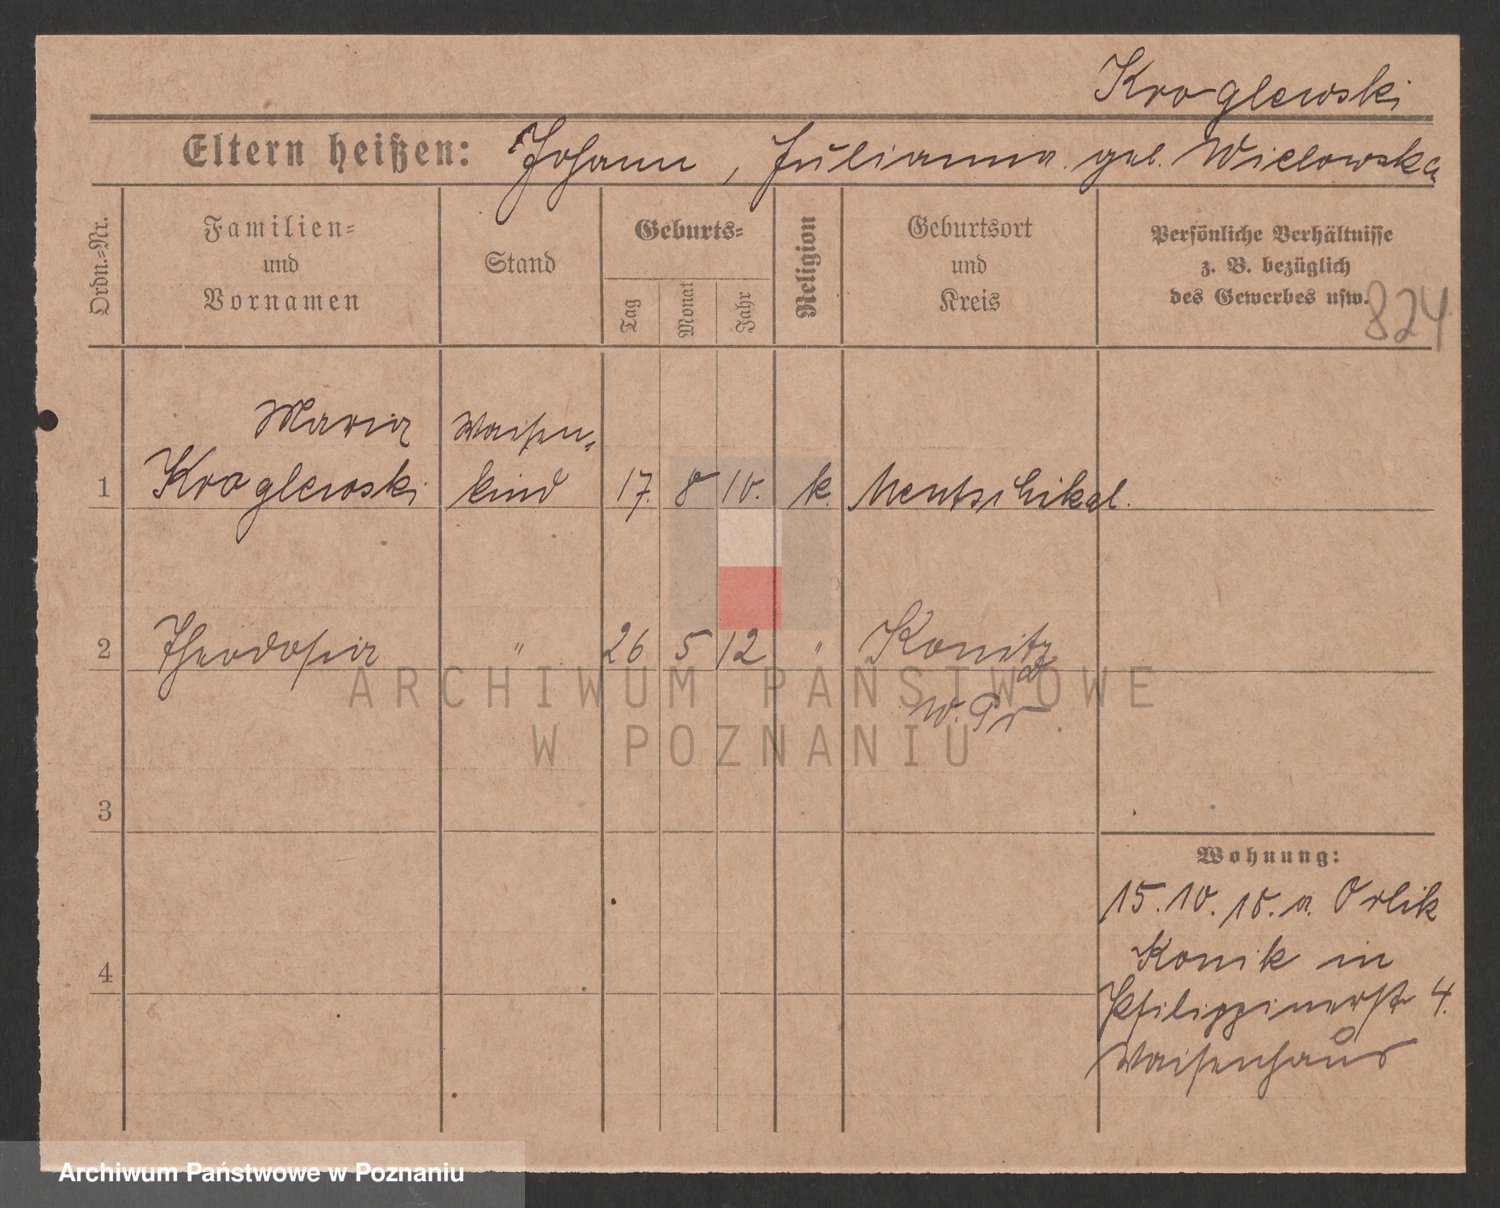 Kroglewski
Eltern heißen: Johann, Julianna geb. Wielowska
Ordn.-Nr.
Familien-
und
Vornamen
Stand
Geburts-
Tag
Monat
Jahr
Religion
Geburtsort
und
Kreis
Persönliche Verhältnisse
z. B. bezüglich
des Gewerbes usw.
824
Maria Waisen-
1 Kroglewski kind 17. 8 10. k. Mentschikal.
2 Theodosia " 26 5 12 " Konitz
W. Pr.
3
4
Wohnung:
15. 10. 18. a. Orlik
Konik in
Philippinerstr 4.
Waisenhaus
ARCHIWUM PAŃSTWOWE
W POZNANIU
Archiwum Państwowe w Poznaniu